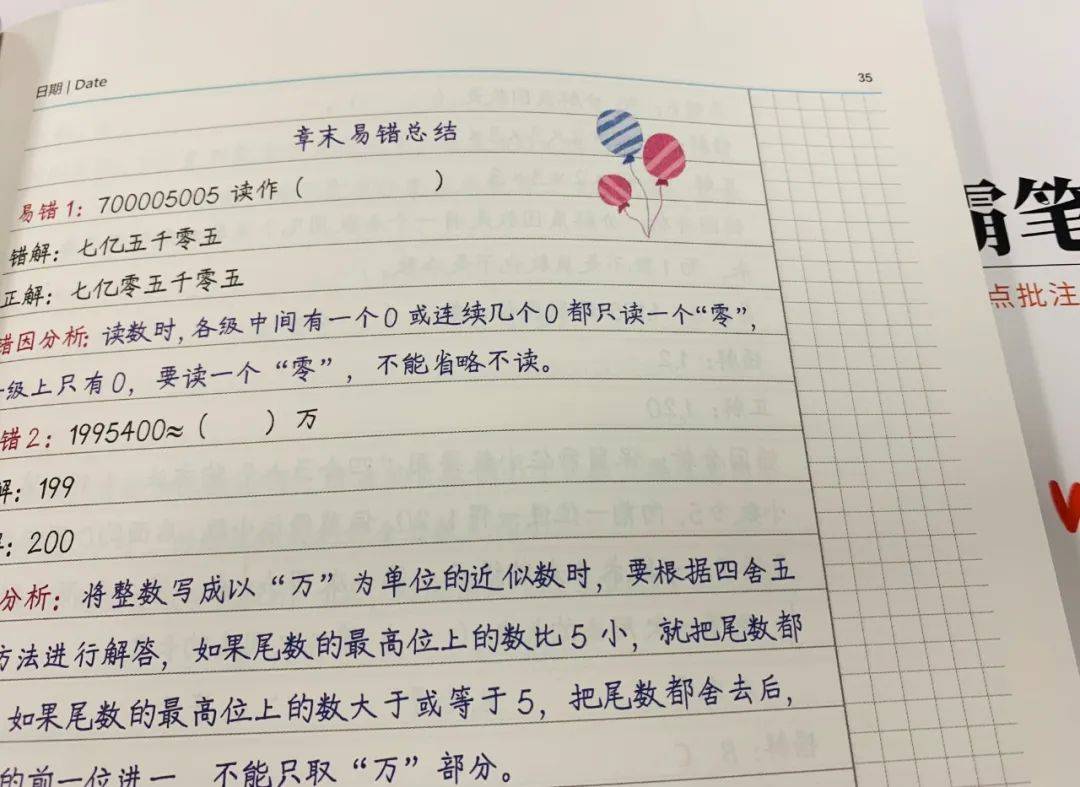 日期 | Date
35
章末易错总结
易错1：700005005 读作（ ）
错解：七亿五千零五
正解：七亿零五千零五
错因分析：读数时，各级中间有一个0 或连续几个0 都只读一个“零”，
级上只有0，要读一个“零”，不能省略不读。
错2：1995400≈（ ）万
解：199
：200
分析：将整数写成以“万”为单位的近似数时，要根据四舍五
方法进行解答，如果尾数的最高位上的数比5小，就把尾数都
如果尾数的最高位上的数大于或等于5，把尾数都舍去后，
的前一位进一 不能只取“万”部分。
霸笔
点批注